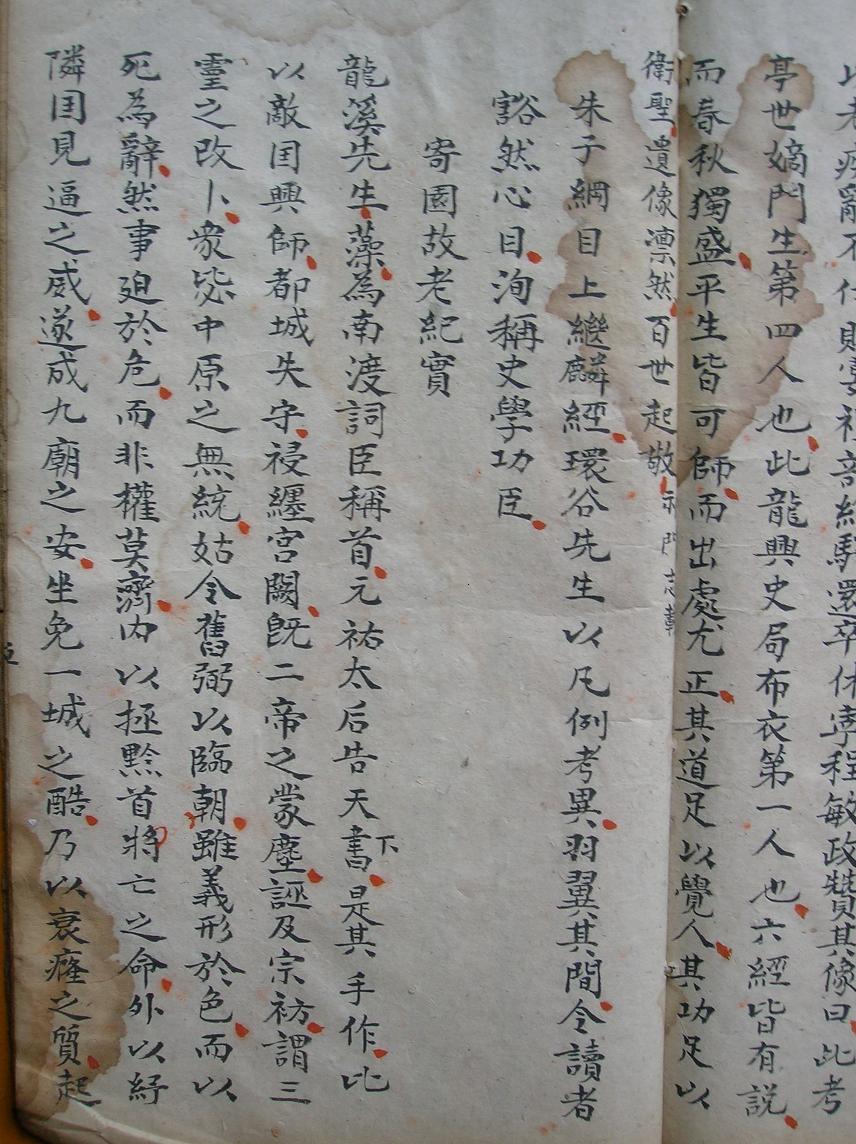 以老疾辭不
亭世嫡門生第四人也此龍興史局布衣第一人也六經皆有説
而春秋獨盛平生皆可師而出處尤正其道足以覺人其功足以
衛聖遺像凛然百世起敬
朱子綱目上繼麟經環谷先生以凡例考異羽翼其間令讀者
豁然心目洵稱史學功臣
寄園故老紀實
龍溪先生藻為南渡詞臣稱首元祐太后告天下書是其手作比
以敵囯興師都城失守祲纏宫闕既二帝之蒙塵誣及宗祊謂三
靈之改卜衆㳼中原之無統姑令舊弼以臨朝雖義形於色而以
死為辭然事廹於危而非權莫濟内以拯黔首將亡之命外以紓
隣囯見逼之威遂成九廟之安坐免一城之酷乃以衰癃之質起